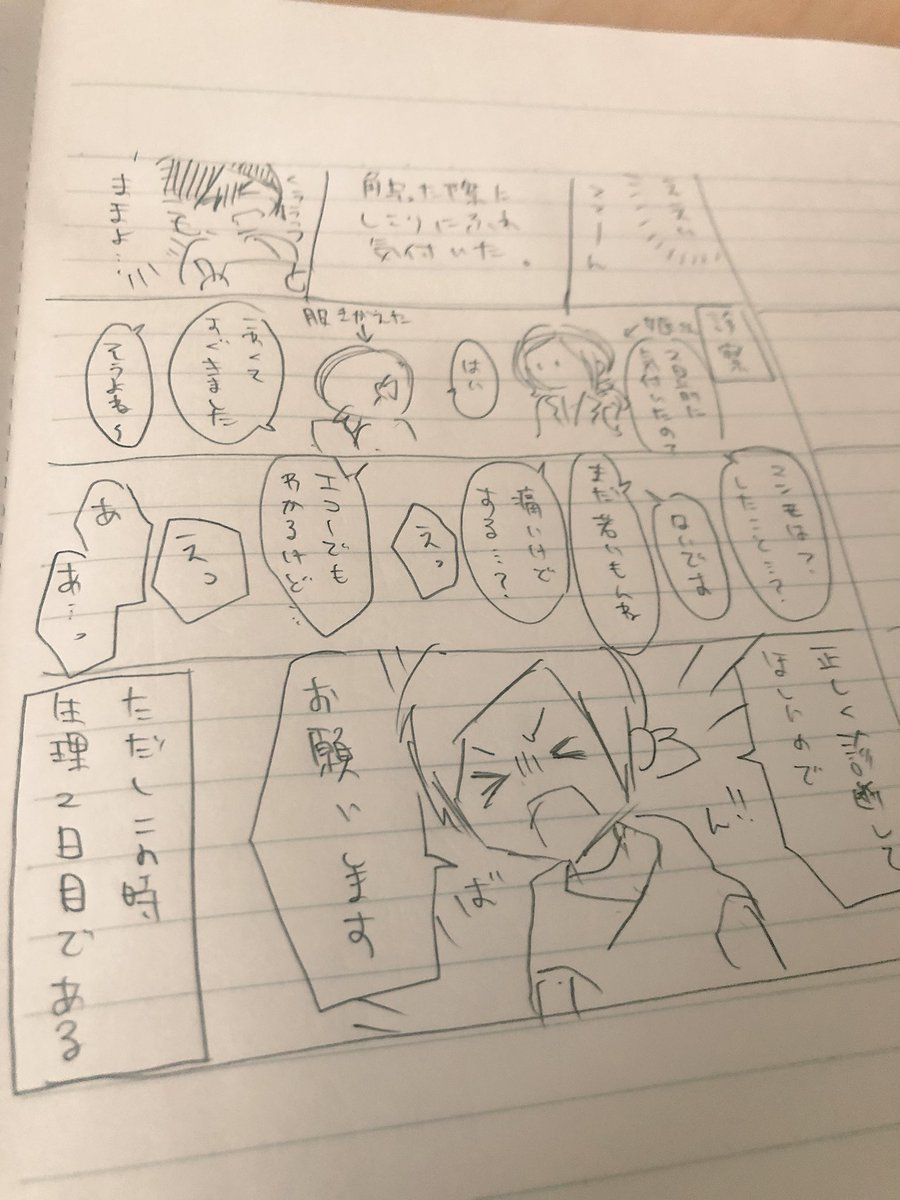 ええい
触った際に
しこりにふれ
気付いた。
ままよ…
診察
2日前に
気付いたので
はい
服きがえた
怖くて
すぐきました
そうよね〜
マンモは?
したこと…?
ないです
まだ若いもんね
痛いけど
する…?
えっ
エコーでも
わかるけど…
えっ
あ
あ…っ
正しく診断して
ほしいので
ん!!
ば
お願いします
ただしこの時
生理2日目である